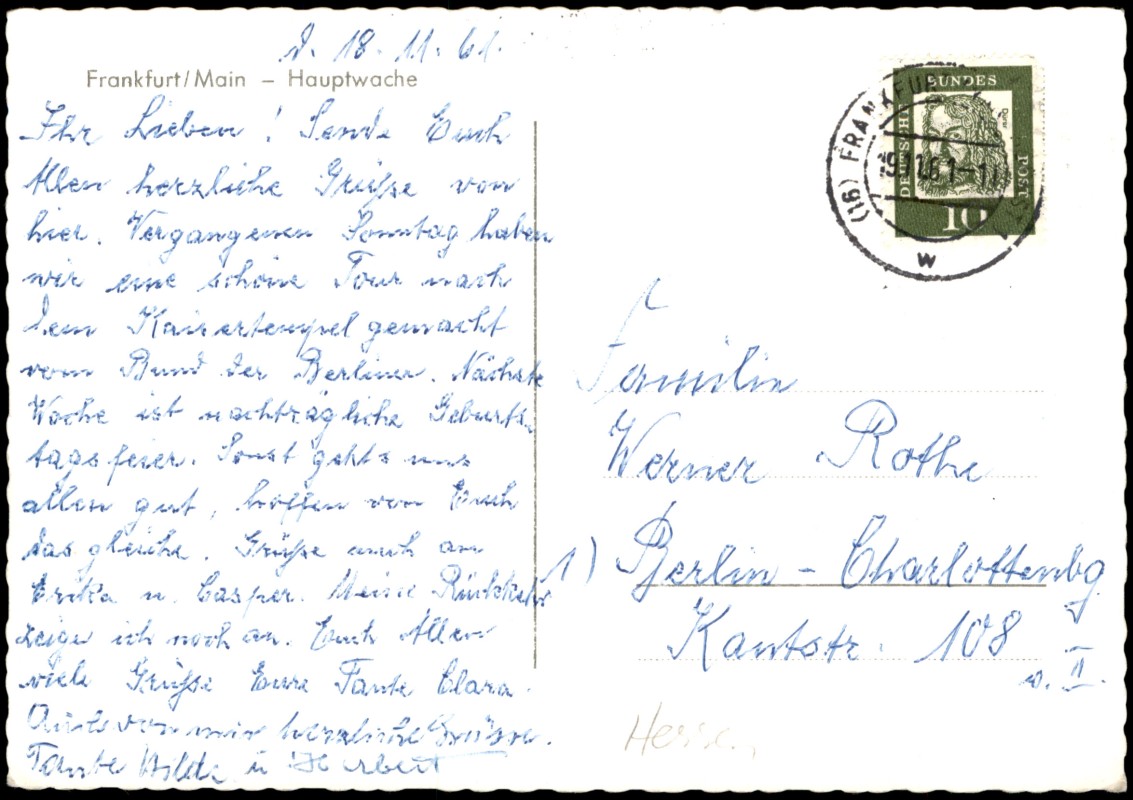 d. 18. 11. 61.
Frankfurt/Main – Hauptwache
Ihr Lieben! Sende Euch
Allen herzliche Grüße von
hier. Vergangenen Sonntag haben
wir eine schöne Tour nach
dem Kaisertempel gemacht
vom Bund der Berliner. Nächste
Woche ist nachträgliche Geburts-
tagsfeier. Sonst geht's uns
allen gut, hoffen von Euch
das gleiche. Grüße auch an
Erika u. Casper. Meine Rückkehr
zeige ich noch an. Euch Allen
viele Grüße Eure Tante Clara.
Auch von mir herzliche Grüsse.
Tante Hilde u Herbert
DEUTSCHE BUNDESPOST
10
(16) FRANKFURT
19.11.61-11
w
Familie
Werner Rothe
1) Berlin - Charlottenbg
Kantstr. 108
v. II.
Hessen